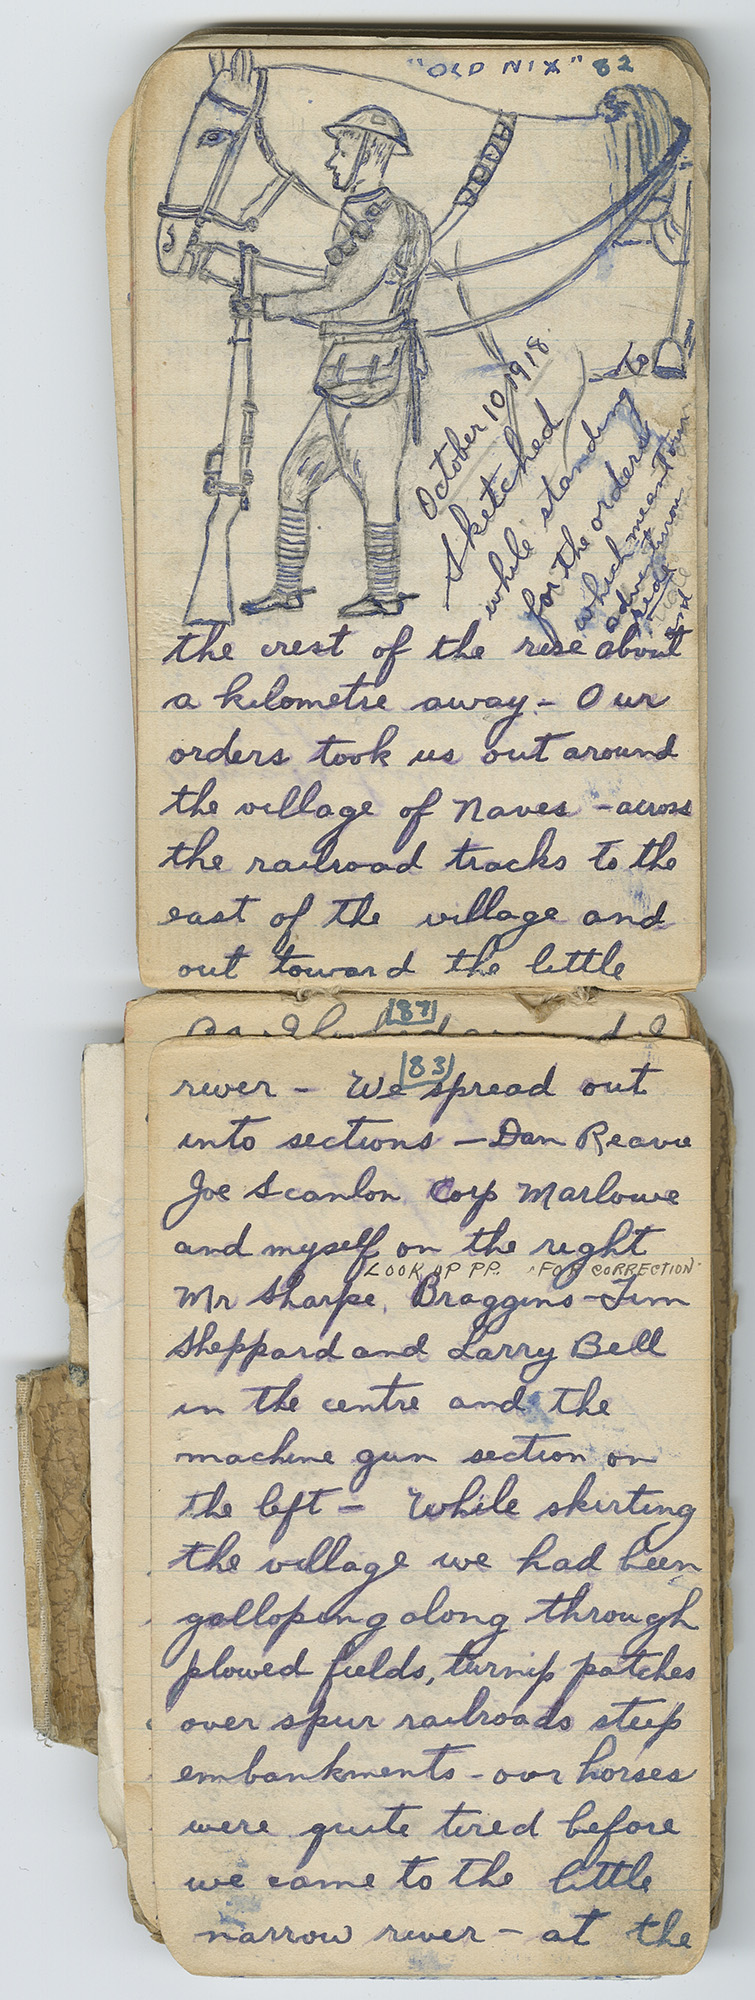 "OLD NIX" 82
October 10 1918
Sketched
while standing to
for the orders
which meant our
adventurous
ride
and
the crest of the rise about
a kilometre away - Our
orders took us out around
the village of Naves - across
the railroad tracks to the
east of the village and
out toward the little
87
83
river - We spread out
into sections - Dan Reavie
Joe Scanlon Corp Marlowe
and myself on the right
LOOK UP PP. FOR CORRECTION
Mr Sharpe, Braggins - Jim
Sheppard and Larry Bell
in the centre and the
machine gun section on
the left - While skirting
the village we had been
galloping along through
plowed fields, turnip patches
over spur railroads steep
embankments - our horses
were quite tired before
we came to the little
narrow river - at the